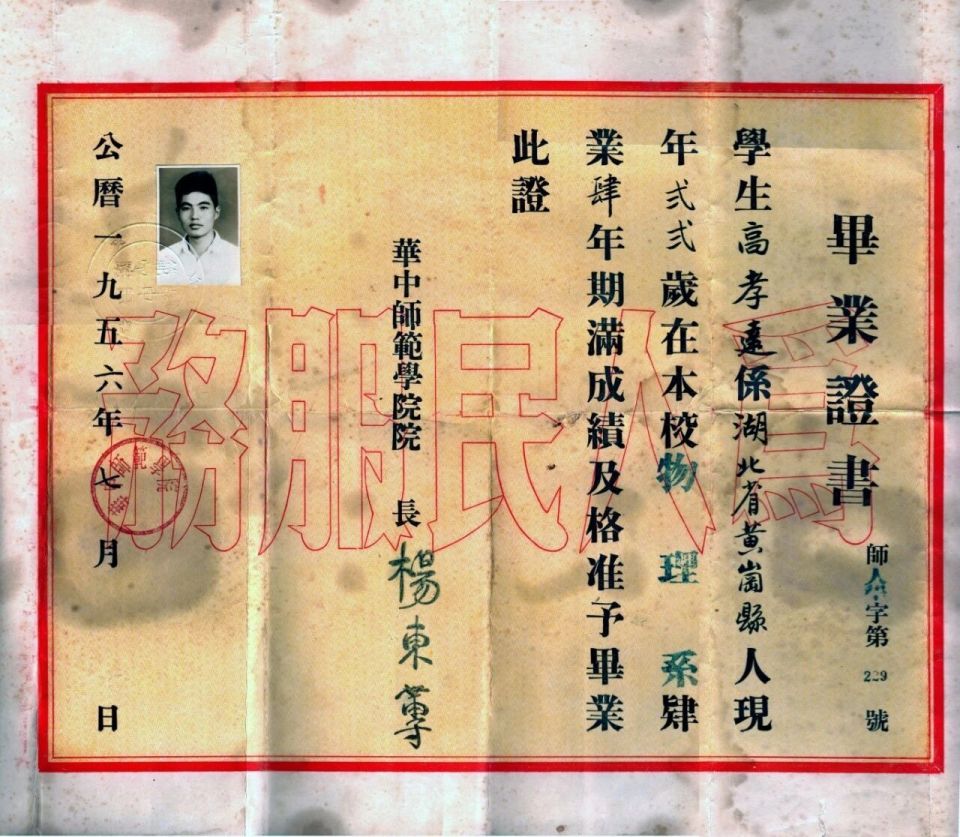 畢業證書
師人字第229號
學生高孝遠係湖北省黃崗縣人現
年弍弍歲在本校物理系肄
業肆年期滿成績及格准予畢業
此證
華中師範學院院長楊東蓴
公曆一九五六年七月日
為人民服務